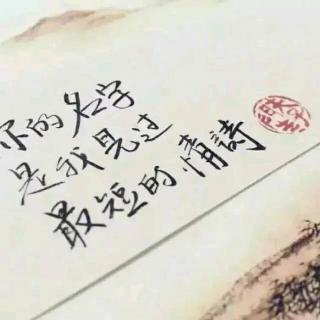 你的名字
是我见过
最短的情詩